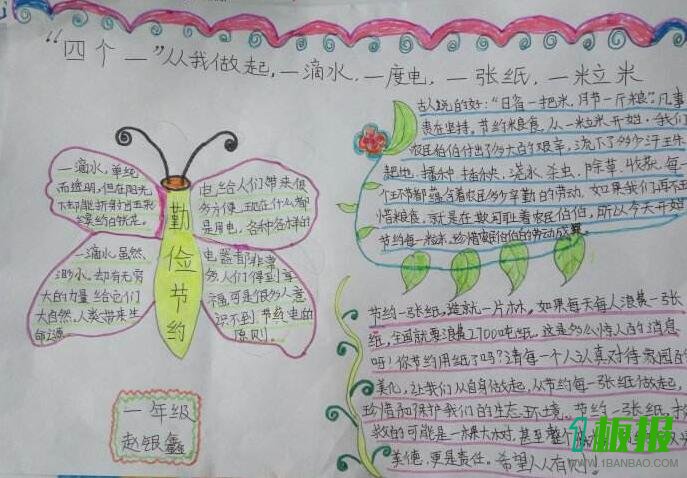 "四个一"从我做起,一滴水,一度电,一张纸,一米立米
一滴水,单纯
而透明,但在阳光
下却能折射出五彩
缤纷的状况。
一滴水虽然
渺小,却有无穷
大的力量给它们
大自然,人类带来生
命之源。
勤俭节约
电给人们带来很
多方便,现在什么都
是用电,各种各样的
电器都非常
多,人们得到享
福,可是很多人意
识不到节约电的
原则。
一年级
赵银鑫
古人说的好:"日省一把米,月节一斤粮"。凡事
贵在坚持。节约粮食,从一米立米开始,
农民伯伯付出了多大的艰辛,流下了多少汗
起地,播种,插秧,浇水,杀虫,除草,收获,每一
个环节都蕴含着农民多少辛勤的劳动,如果我们再不
惜粮食,就是在欺
着农民伯伯,所以今天开始
节约每一粒米,珍惜农民伯伯的劳动成果。
节约一张纸,造就一片林,如果每天每人浪费一张
纸,全国就要浪费2700吨纸,这是多么惊人的消息
呀!你节约用纸了吗?请每一个人认真对待家园的
美化,让我们从自身做起,从节约每一张纸做起,
珍惜和保护我们的生态环境。节约一张纸,
救的可能是一棵大树,甚至整个
美德,更是责任。希望人人有
1板报
WWW.1BANBAO.COM